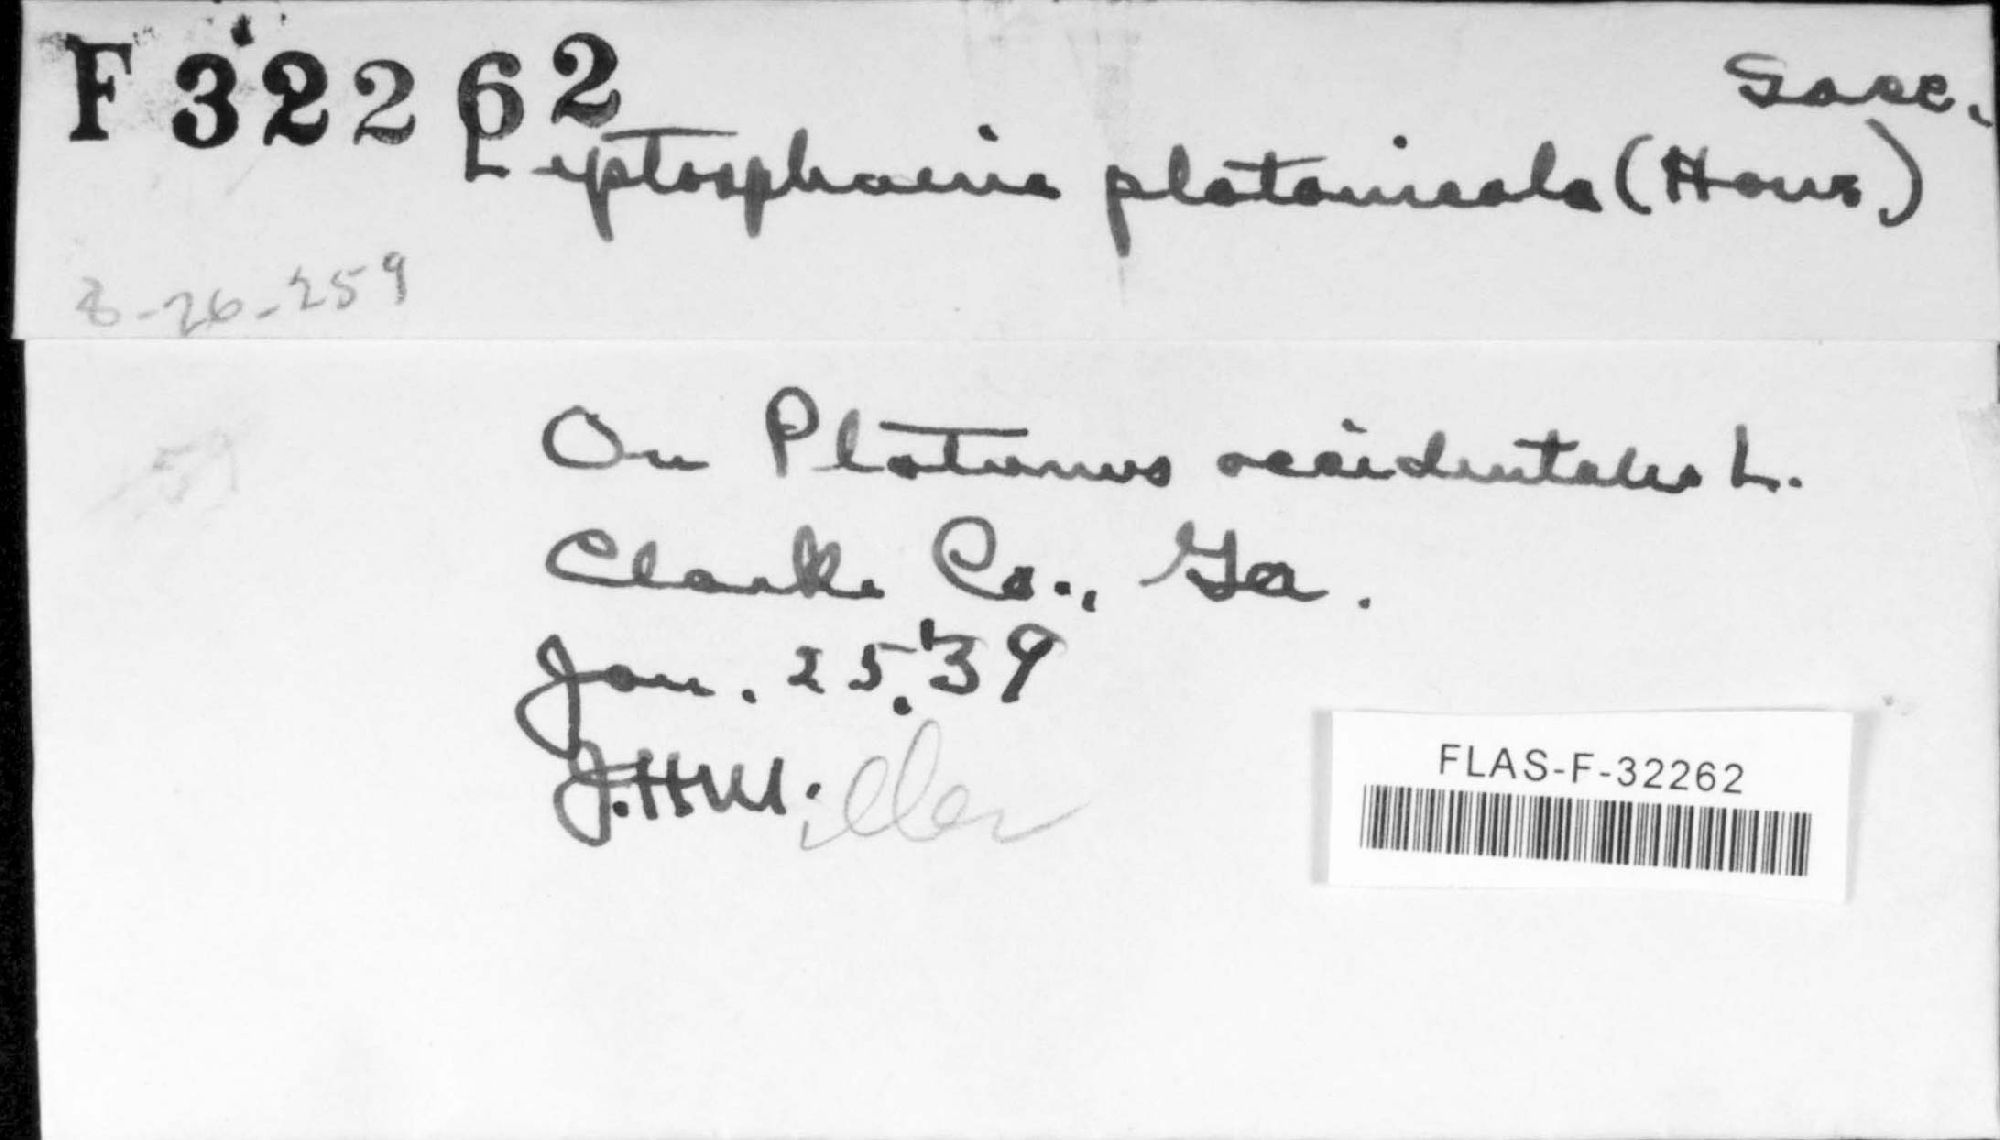 F32262
Leptosphaeria platanicola (Howe) Sacc.
8-26-259
On Platanus occidentalis L.
Clarke Co., Ga.
Jan. 25, '39
J.H. Miller
FLAS-F-32262